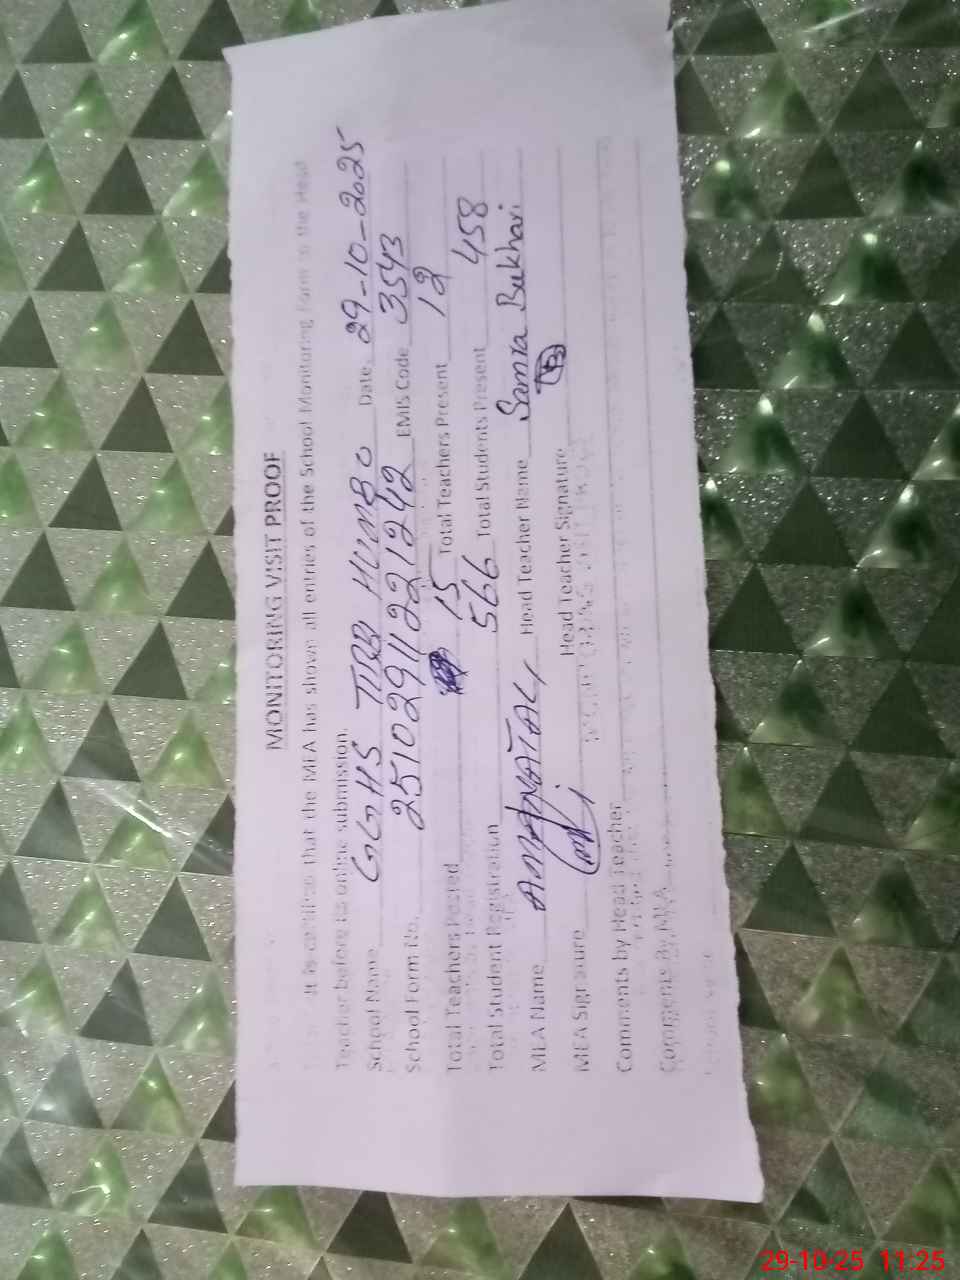 MONITORING VISIT PROOF
It is certified that the MEA has shown all entries of the School Monitoring Form to the Head
Teacher before its online submission.
School Name GGHS TIBBI HUMBO Date 29-10-2025
School Form No. 2510291122121242 EMIS Code 3543
Total Teachers Posted 15 Total Teachers Present 12
Total Student Registration 566 Total Students Present 458
MEA Name Head Teacher Name Samra Bukhari
MEA Signature Head Teacher Signature
Comments by Head Teacher
Comments By MEA
29-10-25 11:25